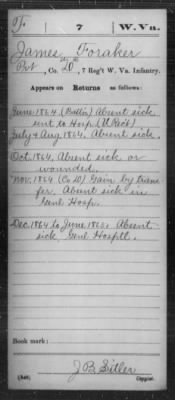 F. 7 W. Va.
James Foraker
Pvt, Co. D, 7 Reg't W. Va. Infantry.
Appears on Returns as follows:
June 1864 (Battln) Absent sick
sent to Hospl
July & Aug 1864. Absent sick.
Oct. 1864. Absent sick or
wounded.
Nov. 1864 (Co D) Gain by trans
fer. Absent sick in
Genl Hosp.
Dec. 1864 to June 1865. Absent
sick Genl Hosptl.
Book mark:
J B Sitler
(546) Copyist.